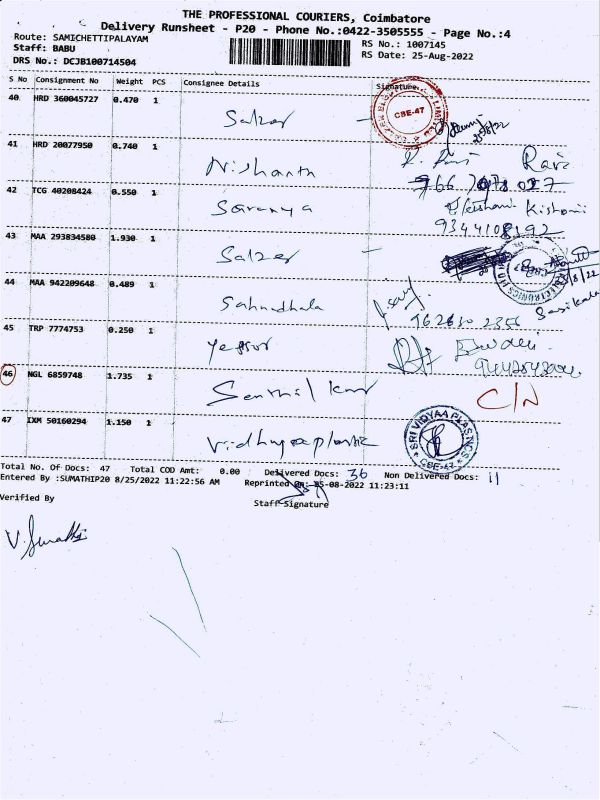 THE PROFESSIONAL COURIERS, Coimbatore
Delivery Runsheet - P20 - Phone No.:0422-3505555 - Page No.:4
Route: SAMICHETTIPALAYAM
Staff: BABU
DRS No.: DCJB100714504
RS No.: 1007145
RS Date: 25-Aug-2022
S No Consignment No Weight PCS Consignee Details Signature
40 HRD 360045727 0.470 1 Salzer -
CBE-47
25/8/22
41 HRD 20077950 0.740 1 Nishanth Ravi
42 TCG 40208424 0.550 1 Saranya Kishani
9344108192
43 MAA 293834580 1.930 1 Salzer -
44 MAA 942209648 0.489 1 Sasikala
45 TRP 7774753 0.250 1
46 NGL 6859748 1.735 1 Senthil kumar C/N
47 IXM 50160294 1.150 1 Vidhyaaplastic
SRI VIDYAA PLASTICS
CBE-47
Total No. Of Docs: 47 Total COD Amt: 0.00 Delivered Docs: 36 Non Delivered Docs: 11
Entered By :SUMATHIP20 8/25/2022 11:22:56 AM Reprinted On: 25-08-2022 11:23:11
Verified By
Staff Signature
V. Sumathi